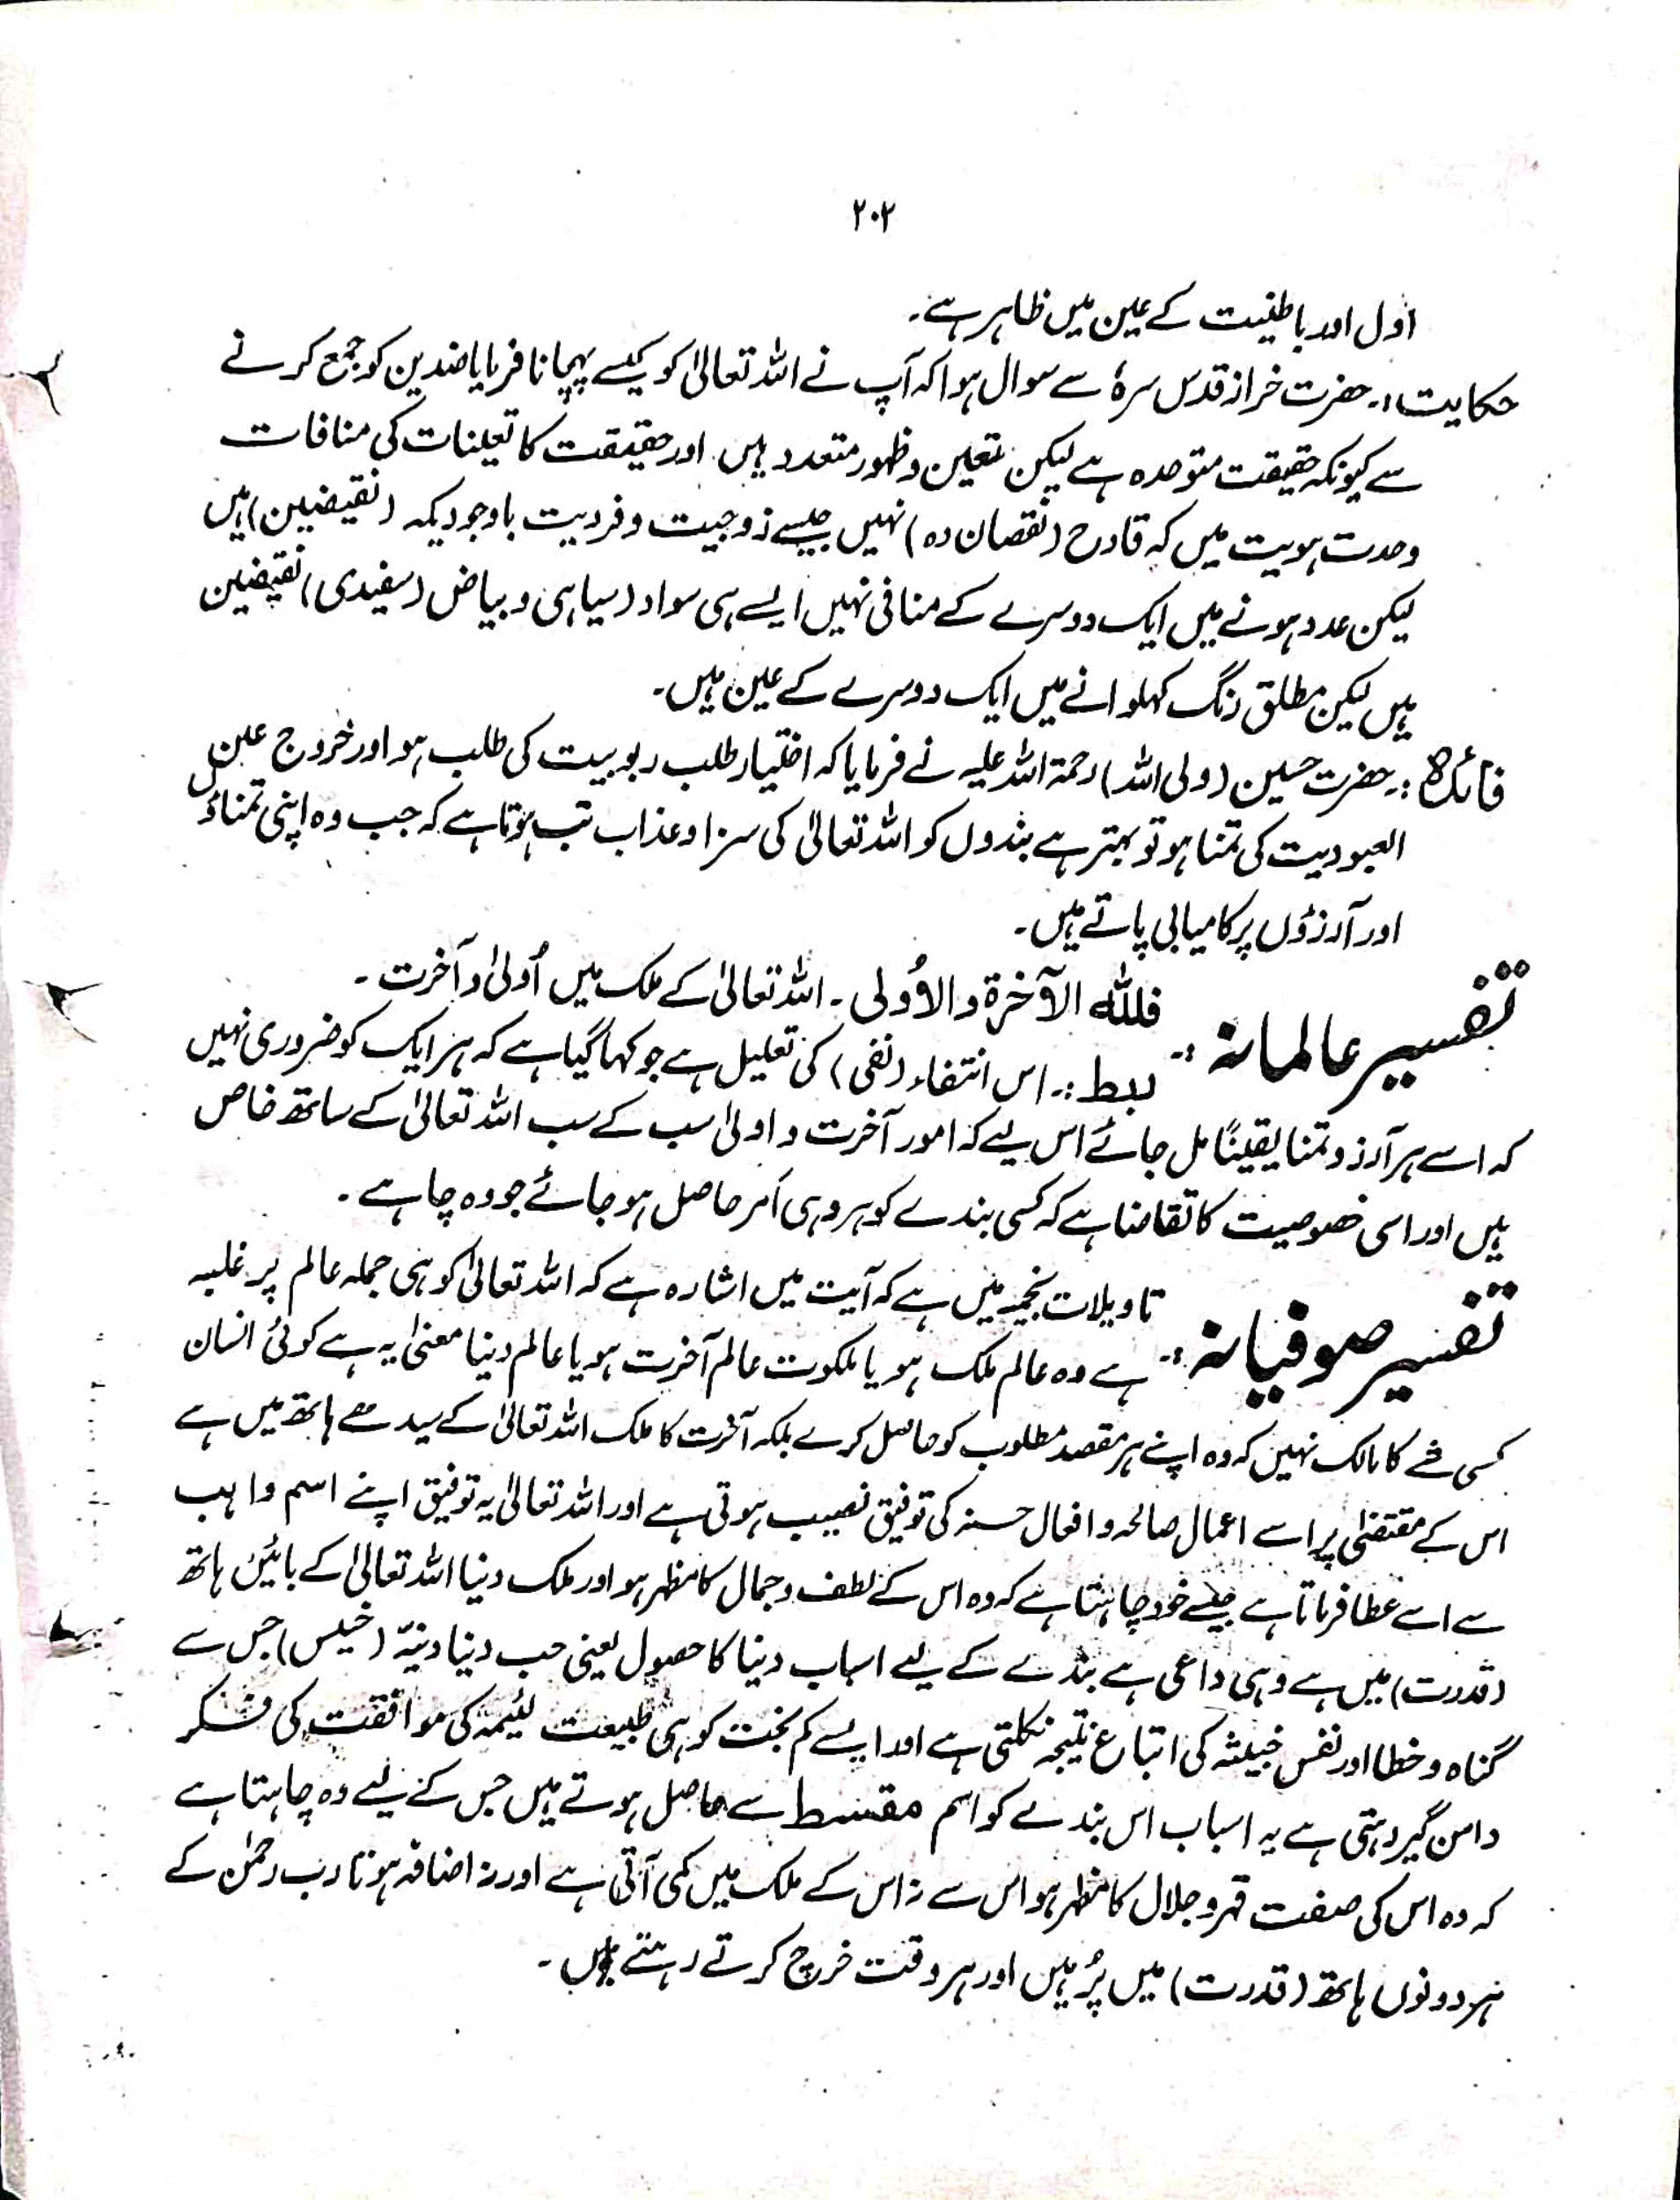 ۲۰۲
اول اور باطنیت کے عین میں ظاہر ہے۔
حکایت:۔ حضرت خراز قدس سرہٗ سے سوال ہوا کہ آپ نے اللہ تعالیٰ کو کیسے پہچانا فرمایا ضدین کو جمع کرنے
سے کیونکہ حقیقت متوحدہ ہے لیکن تعین و ظہور متعدد ہیں اور حقیقت کا تعینات کی منافات
وحدت ہویت میں کہ قادح (نقصان دہ) نہیں جیسے زوجیت و فردیت باوجودیکہ (نقیضین) ہیں
لیکن عدد ہونے میں ایک دوسرے کے منافی نہیں ایسے ہی سواد (سیاہی و بیاض (سفیدی) نقیضین
ہیں لیکن مطلق رنگ کہلوانے میں ایک دوسرے کے عین ہیں۔
فائدہ:۔ حضرت حسین (ولی اللہ) رحمۃ اللہ علیہ نے فرمایا کہ اختیار طلب ربوبیت کی طلب ہو اور خروج عین
العبودیت کی تمنا ہو تو بہتر ہے بندوں کو اللہ تعالیٰ کی سزا و عذاب تب ہوتا ہے کہ جب وہ اپنی تمناؤں
اور آرزؤں پر کامیابی پاتے ہیں۔
تفسیر عالمانہ:۔ فللّٰہ الآخرۃ والاُولی۔ اللہ تعالیٰ کے ملک میں اُولیٰ و آخرت۔
ربط:۔ اس انتفاء (نفی) کی تعلیل ہے جو کہا گیا ہے کہ ہر ایک کو ضروری نہیں
کہ اسے ہر آرزو تمنا یقیناً مل جائے اس لیے کہ امور آخرت و اولیٰ سب کے سب اللہ تعالیٰ کے ساتھ خاص
ہیں اور اسی خصوصیت کا تقاضا ہے کہ کسی بندے کو ہر وہی اَمر حاصل ہو جائے جو وہ چاہے۔
تفسیر صوفیانہ:۔ تاویلات نجمیہ میں ہے کہ آیت میں اشارہ ہے کہ اللہ تعالیٰ کو ہی جملہ عالم پر غلبہ
ہے وہ عالم ملک ہو یا ملکوت عالم آخرت ہو یا عالم دنیا معنیٰ یہ ہے کوئی انسان
کسی شے کا مالک نہیں کہ وہ اپنے ہر مقصد مطلوب کو حاصل کرے بلکہ آخرت کا ملک اللہ تعالیٰ کے سیدھے ہاتھ میں ہے
اس کے مقتضیٰ پر اسے اعمال صالحہ و افعال حسنہ کی توفیق نصیب ہوتی ہے اور اللہ تعالیٰ یہ توفیق اپنے اسم واہب
سے اسے عطا فرماتا ہے جیسے خود چاہتا ہے کہ وہ اس کے لطف و جمال کا مظہر ہو اور ملک دنیا اللہ تعالیٰ کے بائیں ہاتھ
(قدرت) میں ہے وہی داعی ہے بندے کے لیے اسباب دنیا کا حصول یعنی حب دنیا دنیّہ (خسیس) جس سے
گناہ و خطا اور نفس خبیثہ کی اتباع نتیجہ نکلتی ہے اور ایسے کم بخت کو ہی طبیعت لئیمہ کی موافقت کی فکر
دامن گیر رہتی ہے یہ اسباب اس بندے کو اسم مقسط سے حاصل ہوتے ہیں جس کے لیے وہ چاہتا ہے
کہ وہ اس کی صفت قہر و جلال کا مظہر ہو اس سے نہ اس کے ملک میں کمی آتی ہے اور نہ اضافہ ہوتا رب رحمٰن کے
ہر دونوں ہاتھ (قدرت) میں پُر ہیں اور ہر وقت خرچ کرتے رہتے ہیں۔